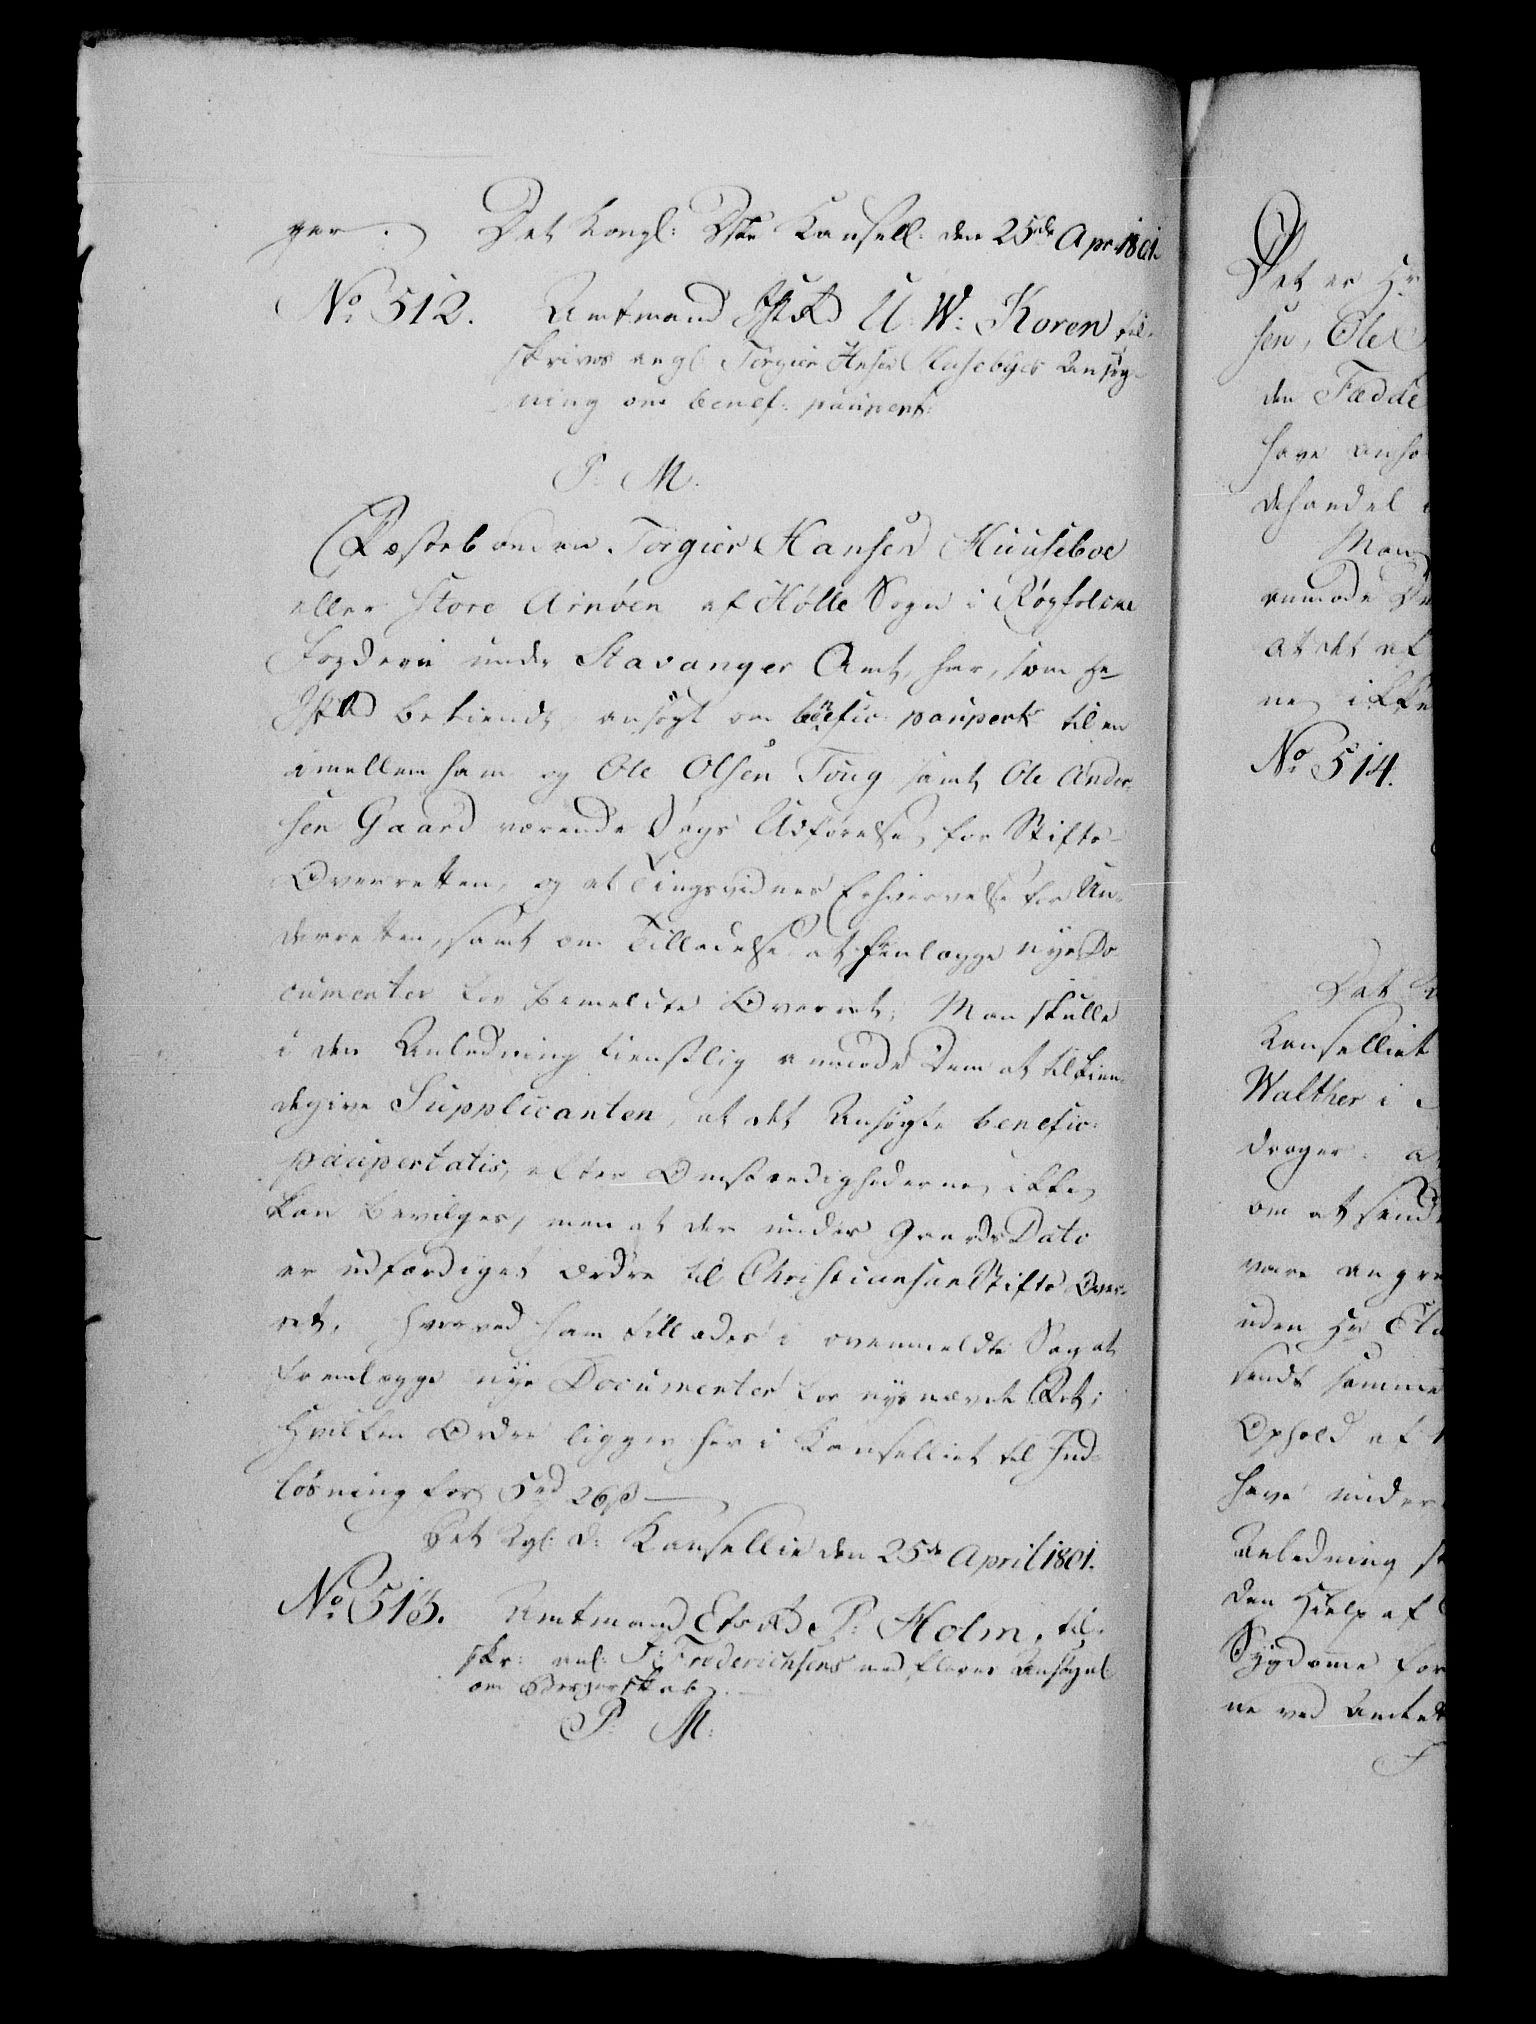 ger. Det Kongl: Dske Kansell: den 25de Apr 1801.
No 512. Amtmand JstRd U: W: Koren til-
skrives angl: Torgier Hansen Huusebyes Ansøg-
ning om benef: paupert:
P: M.
Fæstebonden Torgier Hansen Huuseboe
eller Store Arnöen af Hölle Sogn i Röyfolcke
Fogderie under Stavanger Amt, har, som Hr
JstRd bekiendt, ansøgt om benefic: paupert: til en
imellem ham og Ole Olsen Toug samt Ole Ander-
sen Gaard værende Sags Udførelse, for Stifts-
Overretten, og et Tingsvidnes Erhvervelse for Un-
derretten, samt om Tilladelse at fremlægge nye Do-
cumenter for bemeldte Overret; Man skulle
i den Anledning tienstlig anmode Dem at tilkien-
degive Supplicanten, at det Ansøgte benefic:
paupertatis, efter Omstændighederne, ikke
kan bevilges, men at der under Gaards Dato
er udfærdiget Ordre til Christiansands Stifts Over-
ret, hvorved ham tillades i ovenmeldte Sag at
fremlægge nye Documenter for nysnævnte Ret;
Hvilken Ordre ligger her i Kanselliet til Ind-
løsning for 5 rd 26 ß
Det Kgl: D: Kansellie den 25de April 1801.
No 513. Amtmand EtsRd P: Holm, til-
skr: anl: Frederichsens med fleres Ansøgn:
om Borgerskab.
P: M:
Det er Hr
sen, Ole
den Fædde
have anso
dehandel
Man
anmode De
at det af
ne, ikke
No 514.
Det K
Kanselliet
Walther i
drager. a
om at send
være angre
uden Hr Eta
sendt samme
Ophold af
have under
Anledning s
den Hielp af
Sygdomme for
ne ved Amtet